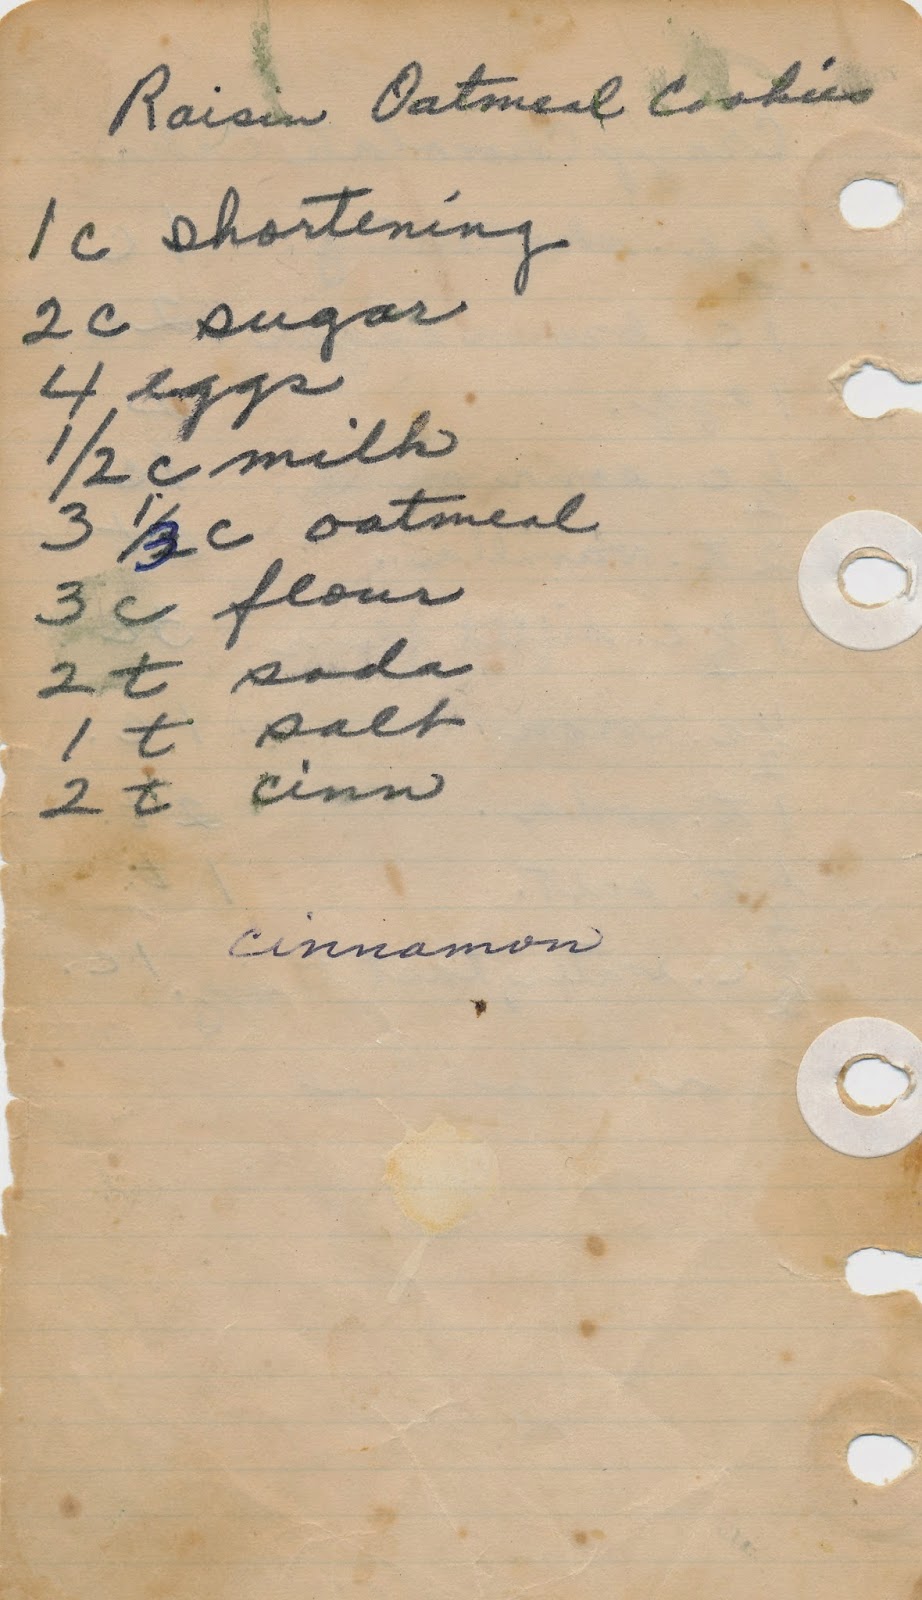 Raisin Oatmeal Cookies
1 c shortening
2 c sugar
4 eggs
1/2 c milk
3 1/3 c oatmeal
3 c flour
2 t soda
1 t salt
2 t cinn
cinnamon